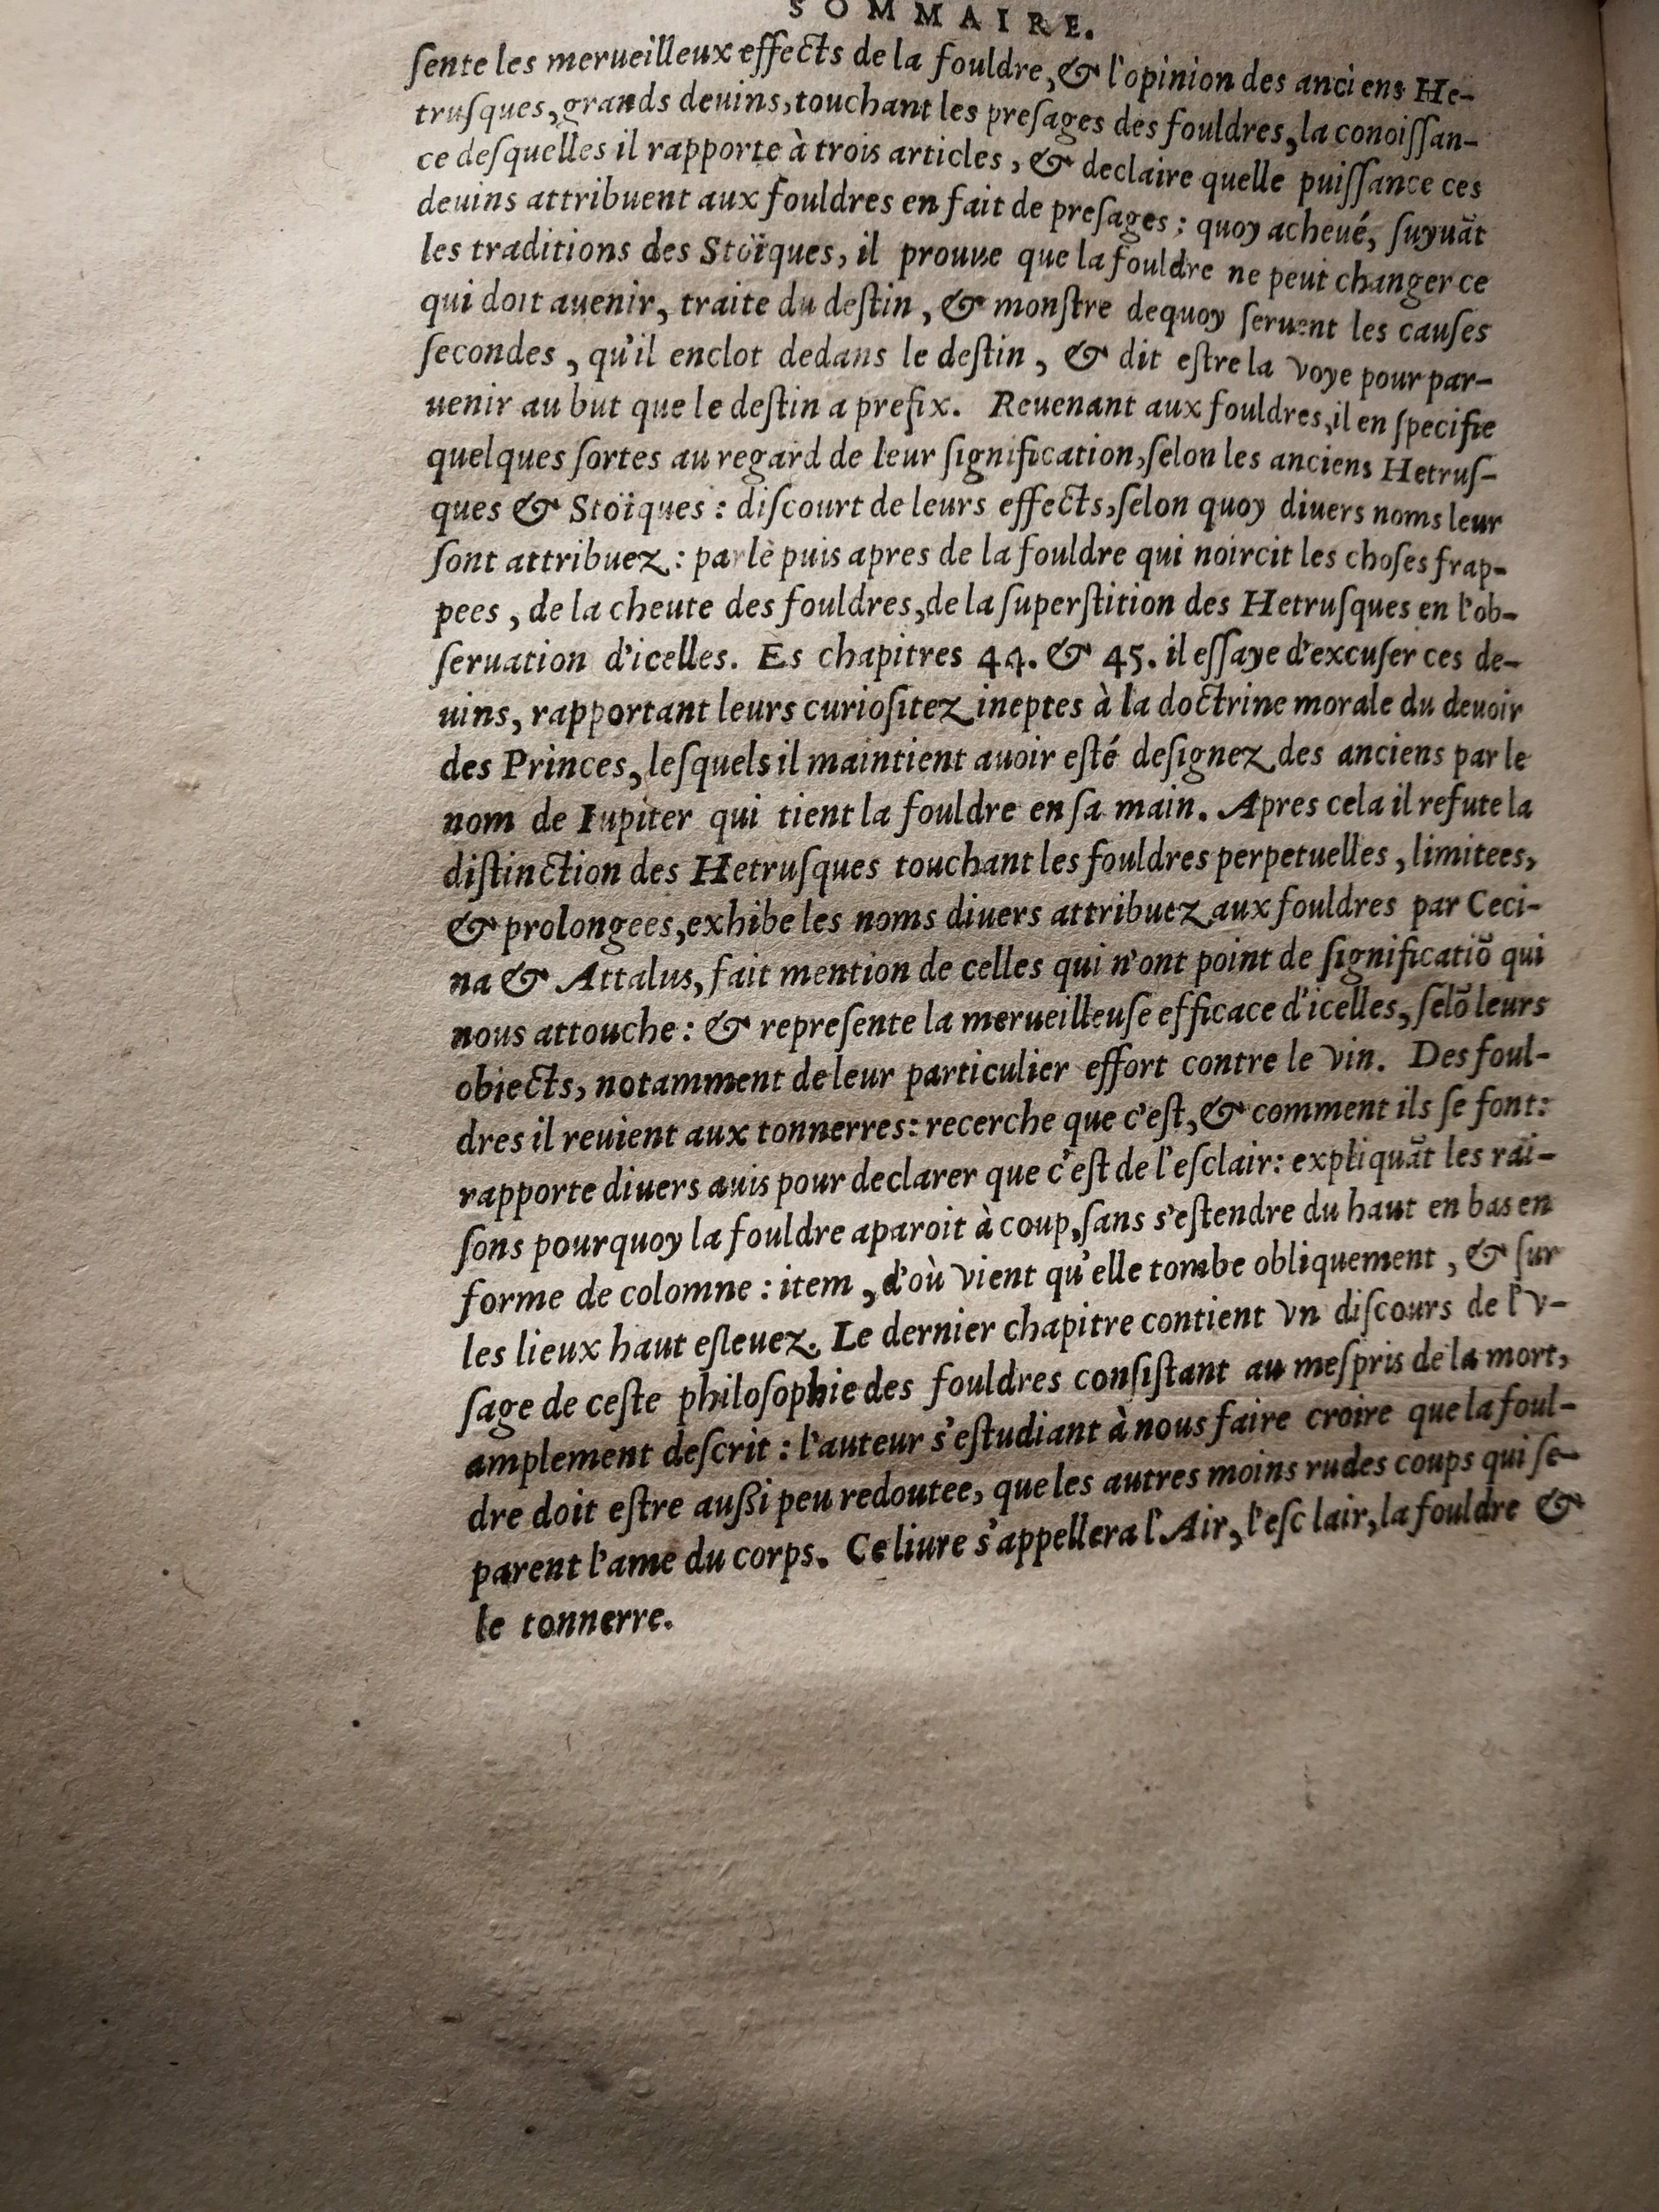 SOMMAIRE.
ſente les merueilleux effects de la fouldre, & l'opinion des anciens He-
truſques, grands deuins, touchant les preſages des fouldres, la conoiſſan-
ce deſquelles il rapporte à trois articles, & declaire quelle puiſſance ces
deuins attribuent aux fouldres en fait de preſages : quoy acheué, ſuyuãt
les traditions des Stoïques, il prouue que la fouldre ne peut changer ce
qui doit auenir, traite du deſtin, & monſtre dequoy seruent les cauſes
ſecondes, qu'il enclot dedans le deſtin, & dit eſtre la voye pour par-
uenir au but que le deſtin a prefix. Reuenant aux fouldres, il en ſpecifie
quelques ſortes au regard de leur ſignification, ſelon les anciens Hetruſ-
ques & Stoïques : diſcourt de leurs effects, ſelon quoy diuers noms leur
ſont attribuez : parle puis apres de la fouldre qui noircit les choſes frap-
pees, de la cheute des fouldres, de la ſuperſtition des Hetruſques en l'ob-
ſeruation d'icelles. Es chapitres 44. & 45. il eſſaye d'excuſer ces de-
uins, rapportant leurs curioſitez ineptes à la doctrine morale du deuoir
des Princes, leſquels il maintient auoir eſté deſignez des anciens par le
nom de Iupiter qui tient la fouldre en ſa main. Apres cela il refute la
diſtinction des Hetruſques touchant les fouldres perpetuelles, limitees,
& prolongees, exhibe les noms diuers attribuez aux fouldres par Ceci-
na & Attalus, fait mention de celles qui n'ont point de ſignificatiõ qui
nous attouche : & repreſente la merueilleuſe efficace d'icelles, ſelõ leurs
obiects, notamment de leur particulier effort contre le vin. Des foul-
dres il reuient aux tonnerres : recerche que c'eſt, & comment ils ſe font :
rapporte diuers auis pour declarer que c'eſt de l'eſclair : expliquãt les rai-
ſons pourquoy la fouldre aparoit à coup, ſans s'eſtendre du haut en bas en
forme de colomne : item, d'où vient qu'elle tombe obliquement, & ſur
les lieux haut eſleuez. Le dernier chapitre contient vn diſcours de l'v-
ſage de ceſte philoſophie des fouldres conſiſtant au meſpris de la mort,
amplement deſcrit : l'auteur s'eſtudiant à nous faire croire que la foul-
dre doit eſtre auſſi peu redoutee, que les autres moins rudes coups qui ſe-
parent l'ame du corps. Ce liure s'appellera l'Air, l'eſclair, la fouldre &
le tonnerre.